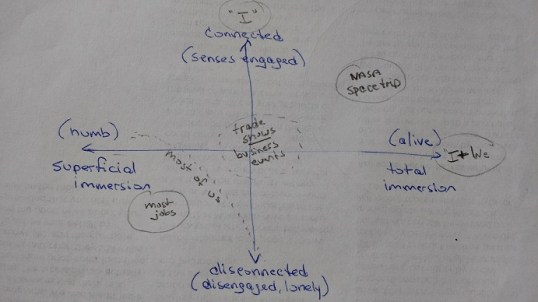 "I"
Connected
(senses engaged)
NASA
space trip
(numb)
trade
shows
business
events
(alive)
"I + We"
superficial
immersion
most of us
total
immersion
most
jobs
disconnected
(disengaged, lonely)